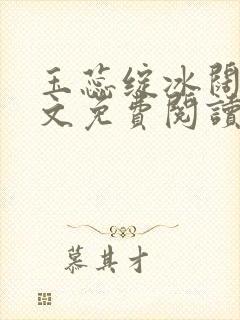 玉蕊绽冰阔
文免費閱讀
慕其才